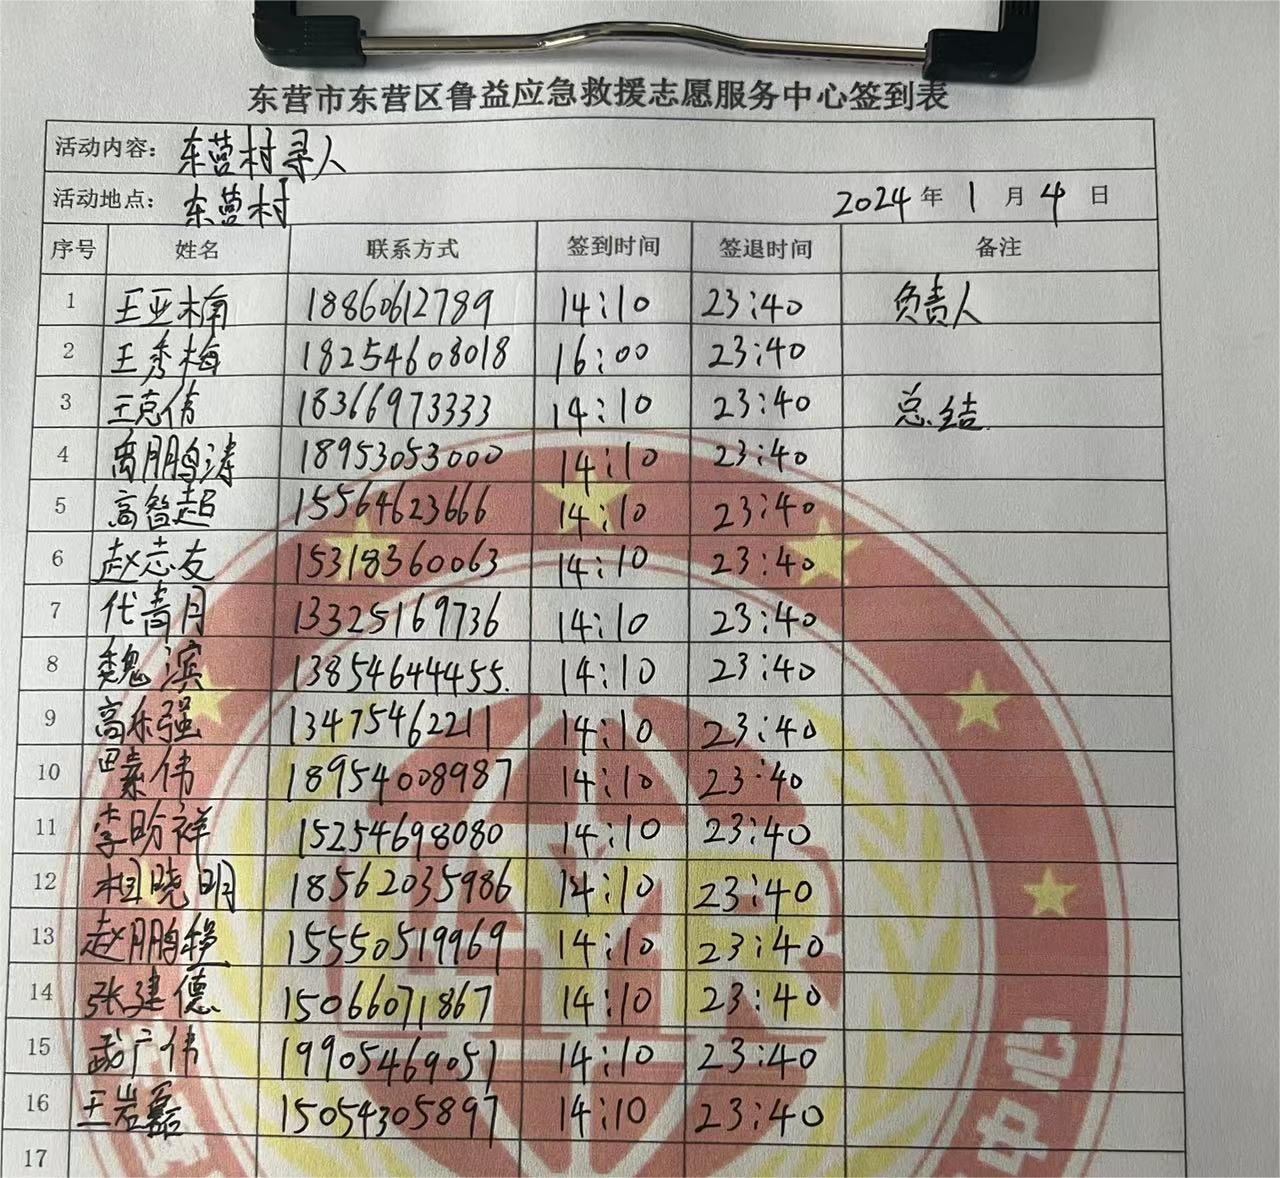 东营市东营区鲁益应急救援志愿服务中心签到表
活动内容: 东营村寻人
活动地点: 东营村 2024 年 1 月 4 日
序号 姓名 联系方式 签到时间 签退时间 备注
1 王亚楠 18860612789 14:10 23:40 负责人
2 王秀梅 18254608018 16:00 23:40
3 王克伟 18366973333 14:10 23:40 总结
4 离鹏涛 18953053000 14:10 23:40
5 高智超 15564623666 14:10 23:40
6 赵志友 15318360063 14:10 23:40
7 代青月 13325169736 14:10 23:40
8 魏滨 13854644455. 14:10 23:40
9 高乐强 13475462211 14:10 23:40
10 18954008987 14:10 23:40
11 李昐祥 15254698080 14:10 23:40
12 相晓明 18562035986 14:10 23:40
13 赵鹏程 15550519969 14:10 23:40
14 张建德 15066071867 14:10 23:40
15 武广伟 19905469051 14:10 23:40
16 王岩磊 15054305897 14:10 23:40
17
HYR
中心